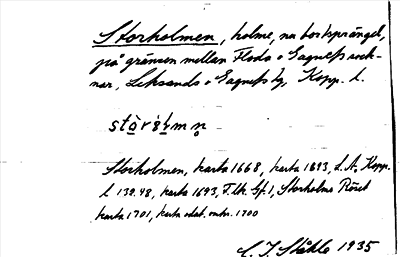 Storholmen, holme, nu bortsprängd,
på gränsen mellan Floda o Gagnefs sock-
nar, Leksands o Gagnefs tg, Kopp. l.
Storholmen, karta 1668, karta 1693, L.A., Kopp.
l 139.48, karta 1693, Storholms Röset
karta 1701, karta odat. omkr. 1700
C. I. Ståhle 1935